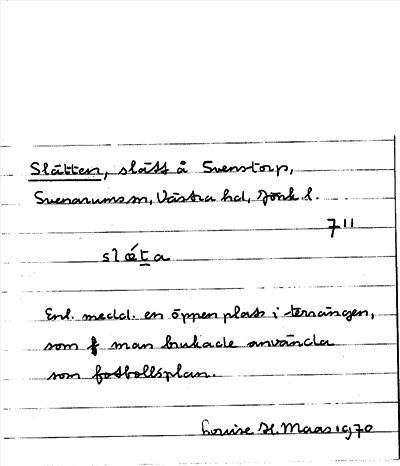 Slätten, slätt å Svenstorp,
Svenarums sn, Västra hd, Jönk l.
7"
slǽta
Enl. medd. en öppen plats i terrängen,
som man brukade använda
som fotbollsplan.
Louise H. Maas 1970